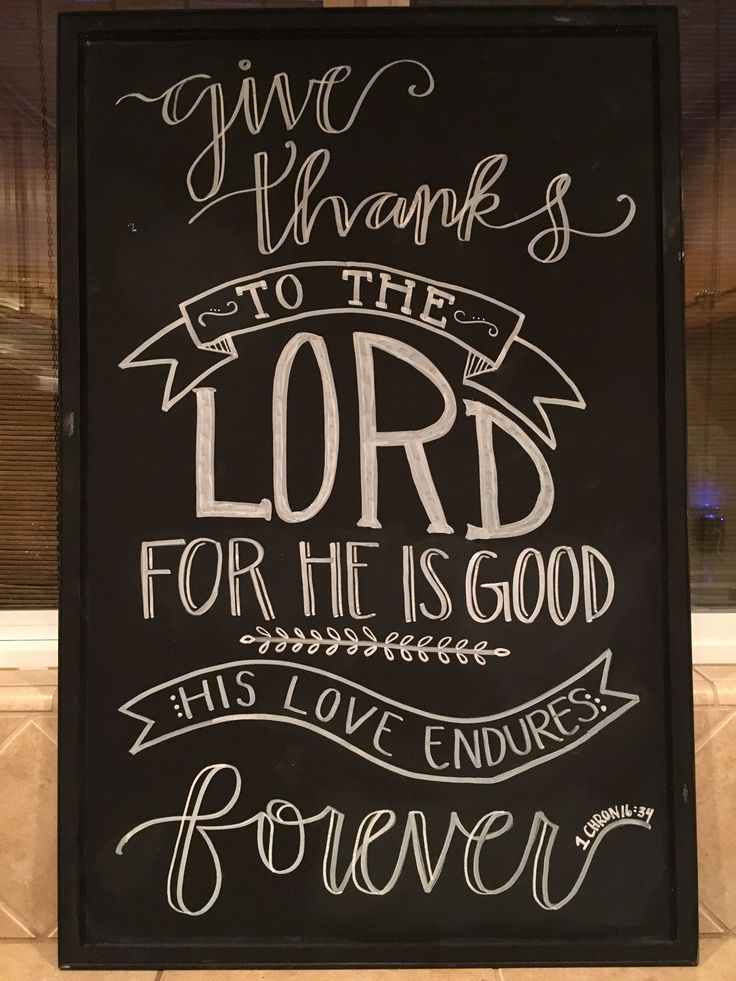 give
thanks
TO THE
LORD
FOR HE IS GOOD
HIS LOVE ENDURES
forever
1 CHRON 16:34